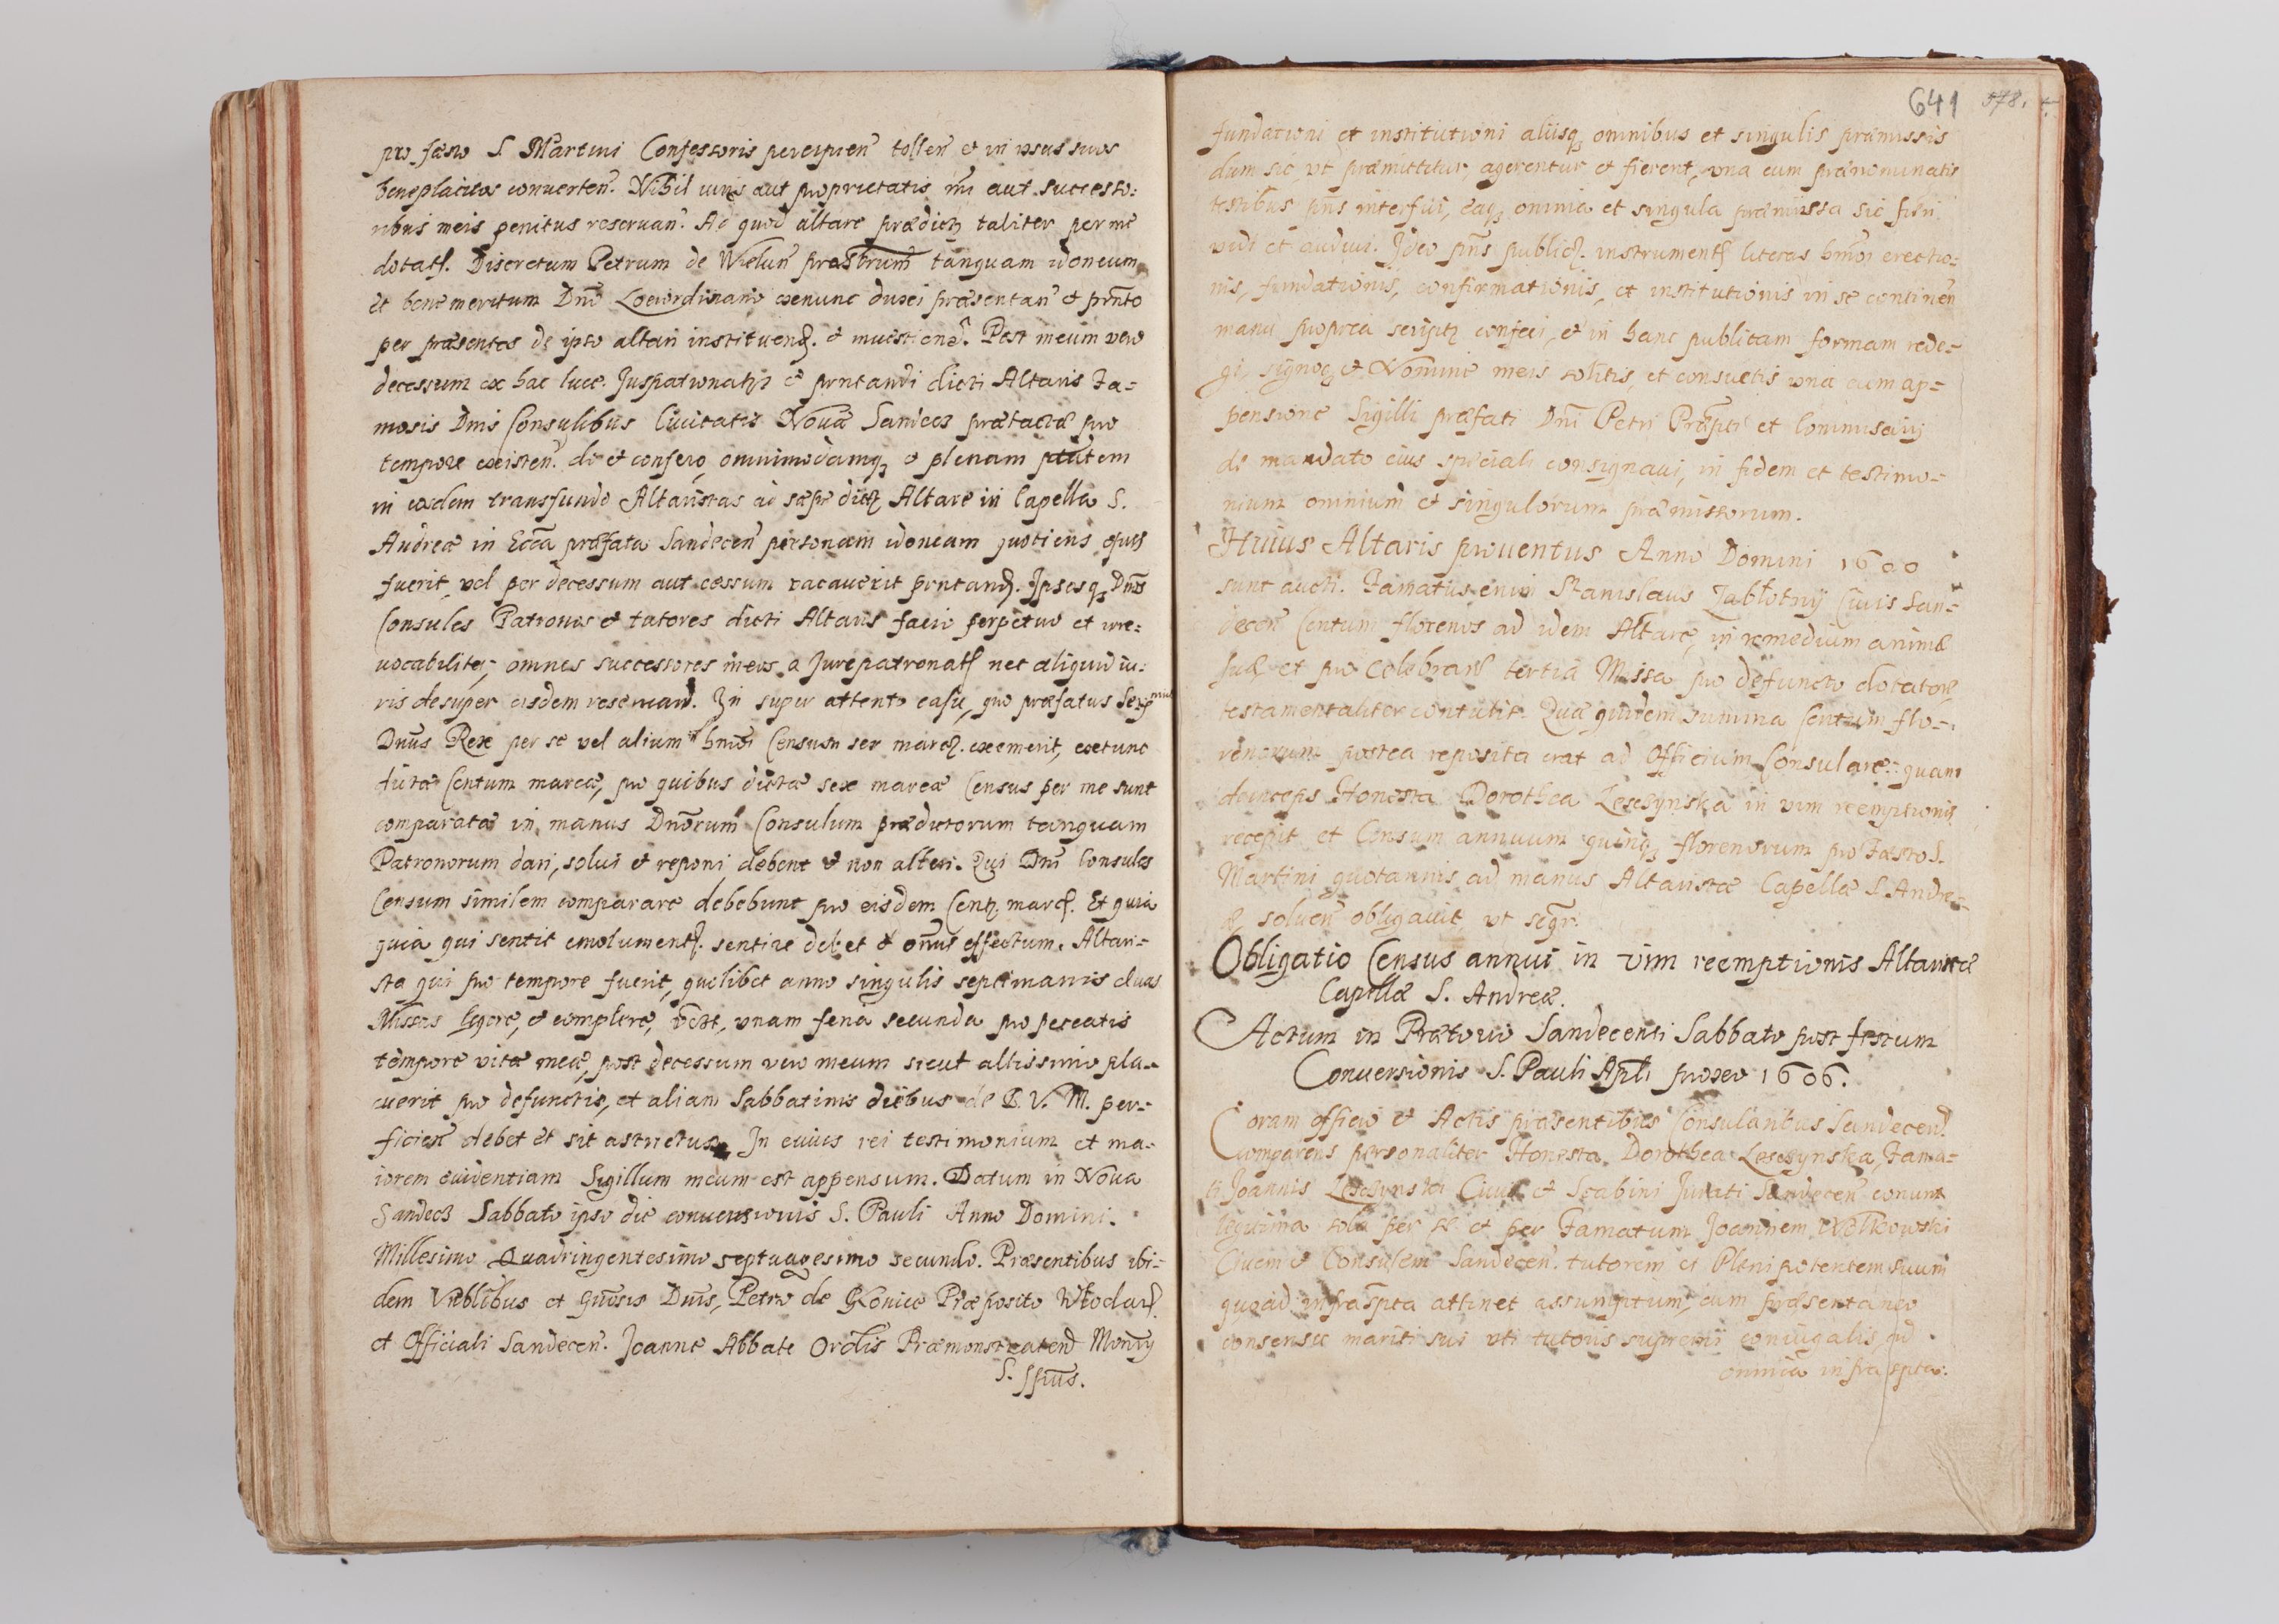 pro festo S. Martini Confessoris percipien̄ tollen̄ et in vsus suos
beneplacitos conuerten̄. Nihil iuris aut proprietatis mi aut successo:
ribus meis penitus reseruan̄. Ad quod altare prædictꝫ taliter per me
dotatꝭ. Discretum Petrum de Wielun̄ præsbrum̄ tanquam idoneum
et bene meritum Dn̄o Loci ordinario exnunc duxi præsentan̄ et prn̄to
per præsentes de ipso altari instituend. et inuestiend. Post meum vero
decessum ex hac luce. Juspatronatꝰ et prntandi dicti Altaris Fa-
mosis Dnis Consulibus Ciuitatis Nouæ Sandecz prætactæ pro
tempore existen̄. do et confero, omnimodamqꝫ et plenam ptātem
in eosdem transfundo Altaristas ad sæpe dictꝫ Altare in Capella S.
Andreæ in Ecc̄a præfata Sandecen̄ personam idoneam quotiens opus
fuerit, vel per decessum aut cessum vacauerit prntand. Ipsosqꝫ Dn̄os
Consules Patronos et tutores dicti Altaris facio perpetuo et irre:
uocabiliter, omnes successores meos a Jurepatronatꝰ nec aliquid iu:
ris desuper eisdem reseruand. In super attento casu, quo præfatus Ser mus
Dnus Rex per se vel alium hmōi Censum sex marcꝭ. exemerit, extunc
dictæ Centum marcæ, pro quibus dictæ sex marcæ Census per me sunt
comparatæ in manus Dnōrum Consulum prædictorum tanquam
Patronorum dari, solui et reponi debent et non alteri. Qui Dni Consules
Censum similem comparare debebunt pro eisdem Centꝫ marcꝭ. Et quia
quia qui sentit emolumentꝫ. sentire debet et onus effectum. Altari-
sta qui pro tempore fuerit, quolibet anno singulis septimanis duas
Missas legere, et complere, vdꝫt, vnam feria secunda pro peccatis
tempore vitæ meæ, post decessum vero meum sicut altissimo pla-
cuerit pro defunctis, et aliam Sabbatinis diebus de B. V. M. per-
ficien̄ debet et sit astrictus. In cuius rei testimonium et ma-
iorem euidentiam Sigillum meum est appensum. Datum in Noua
Sandecz Sabbato ipso die conuersionis S. Pauli Anno Domini.
Millesimo Quadringentesimo septuagesimo secundo. Præsentibus ibi-
dem Vnblibus et Gnōsis Dnis, Petro de Konice Præposito Włodaꝭ
et Officiali Sandecen̄. Joanne Abbate Ordis Præmonstraten̄ Monrÿ
S. Spūs.
641 578.
fundationi et institutioni aliisqꝫ omnibus et singulis præmissis
dum sic vt præmittitur, agerentur et fierent, vna cum prænominatis
testibus pn̄s interfui, eaqꝫ omnia et singula præmissa sic fieri
vidi et audiui. Ideo pn̄s publicꝫ. instrumentꝫ literas hmōi erectio:
nis, fundationis, confirmationis, et institutionis in se continen̄
manu propria scriptꝫ confeci, et in hanc publicam formam rede-
gi, signoqꝫ et Nomine meis solitis, et consuetis vna cum ap-
pensione Sigilli præfati Dn̄i Petri Præpti et Commissarij
de mandato eius speciali consignaui, in fidem et testimo-
nium omnium et singulorum præmissorum.
Huius Altaris prouentus Anno Domini 1600
sunt aucti. Famatus enim Stanislaus Jabłotnÿ Ciuis San-
decen̄ Centum florenos ad idem Altare, in remedium animæ
suæ et pro celebran̄ tertia Missa pro defuncto dotatore
testamentaliter contulit. Quæ quidem summa Centum flo-
renorum postea reposita erat ad Officium Consulare: quam
deinceps Honesta Dorothea Leseÿnska in vim reemptionis
recepit et Censum annuum quinqꝫ florenorum pro Festo S.
Martini quotannis ad manus Altaristæ Capellæ S. Andre-
æ soluen̄ obligauit, vt seqr.
Obligatio Census annui in vim reemptionis Altaristæ
Capellæ S. Andreæ.
Actum in Prætorio Sandecensi Sabbato post festum
Conuersionis S. Pauli Apl̄i proxo 1606.
Coram officio et Actis præsentibus Consularibus Sandecen̄.
Comparens personaliter Honesta Dorothea Leseÿnska, Fama-
ti Joannis Leseÿnski Ciuis et Scabini Jurati Sandecen̄ coniunx
legitima sola per se et per Famatum Joannem Wolkowski
Ciuem et Consulem Sandecen̄. tutorem et Plenipotentem suum
quoad infrascpta attinet assumptum, cum præsentaneo
consensu mariti sui vti tutoris supremi coniugalis, ad
omnia infra spta: